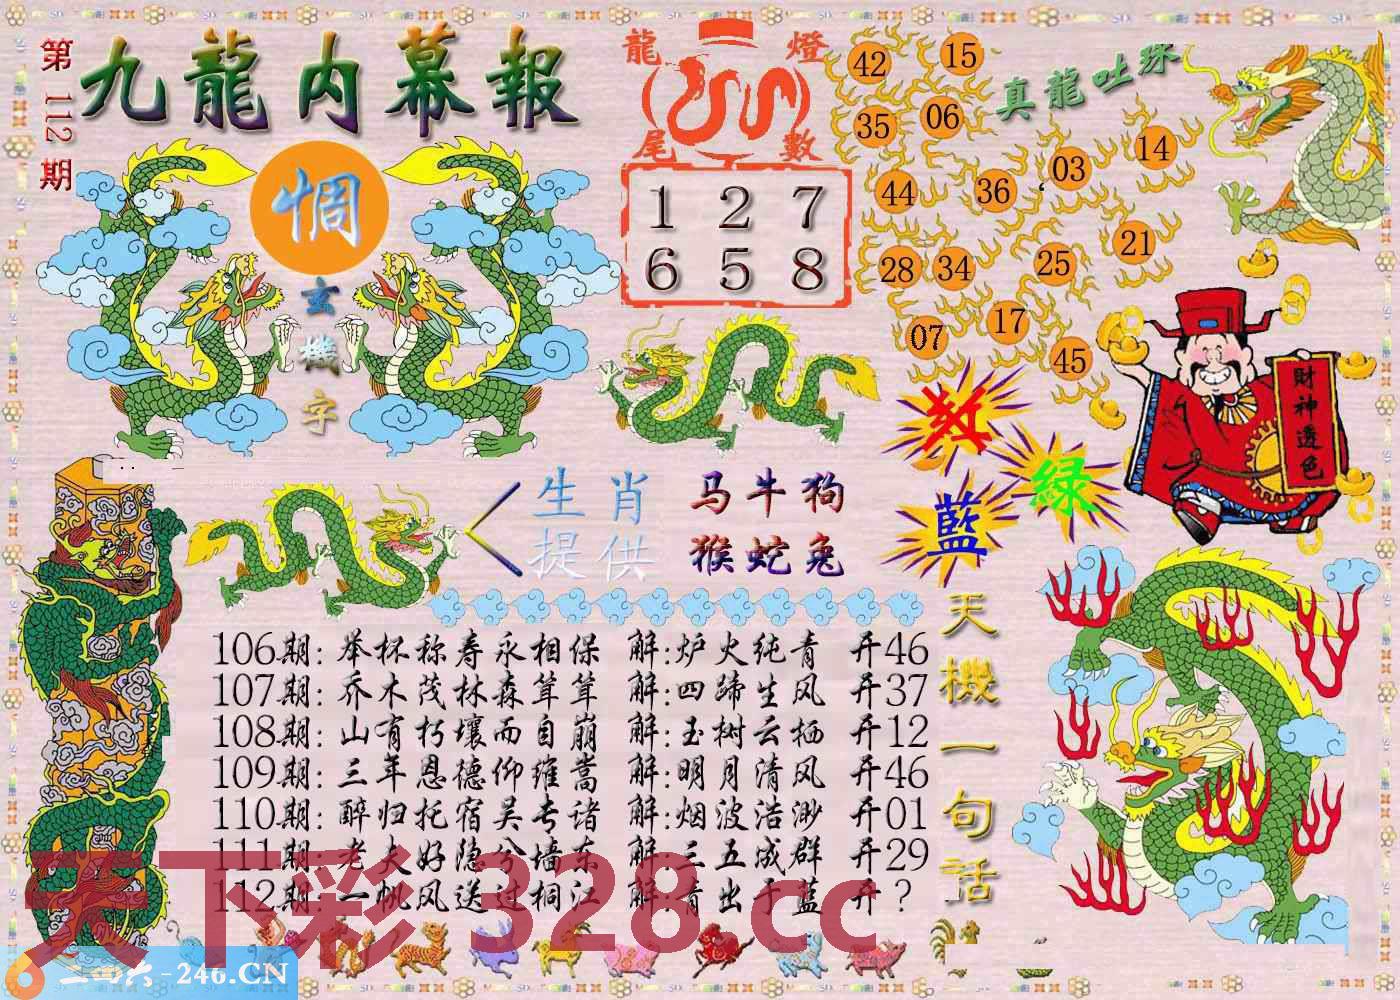 第112期
九龍内幕報
惆
玄機字
龍燈尾數
1 2 7
6 5 8
真龍吐珠
42
15
35
06
44
36
03
14
28
34
25
21
07
17
45
財神透色
红
绿
藍
生肖提供
马牛狗
猴蛇兔
天機一句話
106期:举杯称寿永相保 解:炉火纯青 开46
107期:乔木茂林森茸茸 解:四蹄生风 开37
108期:山有朽壤而自崩 解:玉树云栖 开12
109期:三年恩德仰维嵩 解:明月清风 开46
110期:醉归托宿吴专诸 解:烟波浩渺 开01
111期:老夫好隐兮墙东 解:三五成群 开29
112期:一帆风送过桐江 解:青出于蓝 开?
天下彩 328.cc
二四六-246.CN